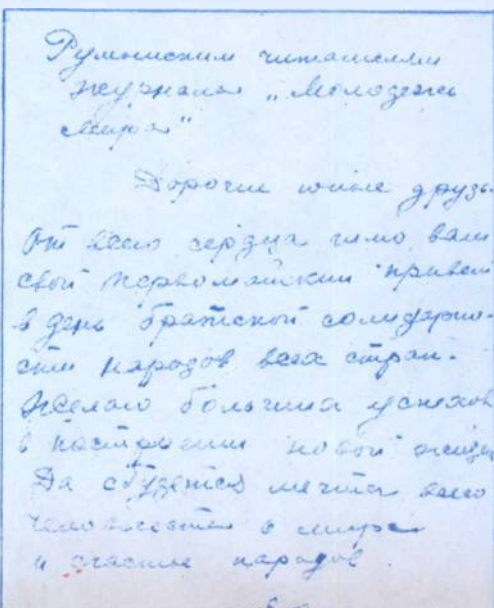 Румынским читателям
журнала „Молодежь
мира"
Дорогие юные друзь
От всего сердца шлю вам
свой первомайский привет
в день братской солидарно-
сти народов всех стран.
Желаю больших успехов
в построении новой жизни
Да сбудется мечта всего
человечества о мире
и счастье народов